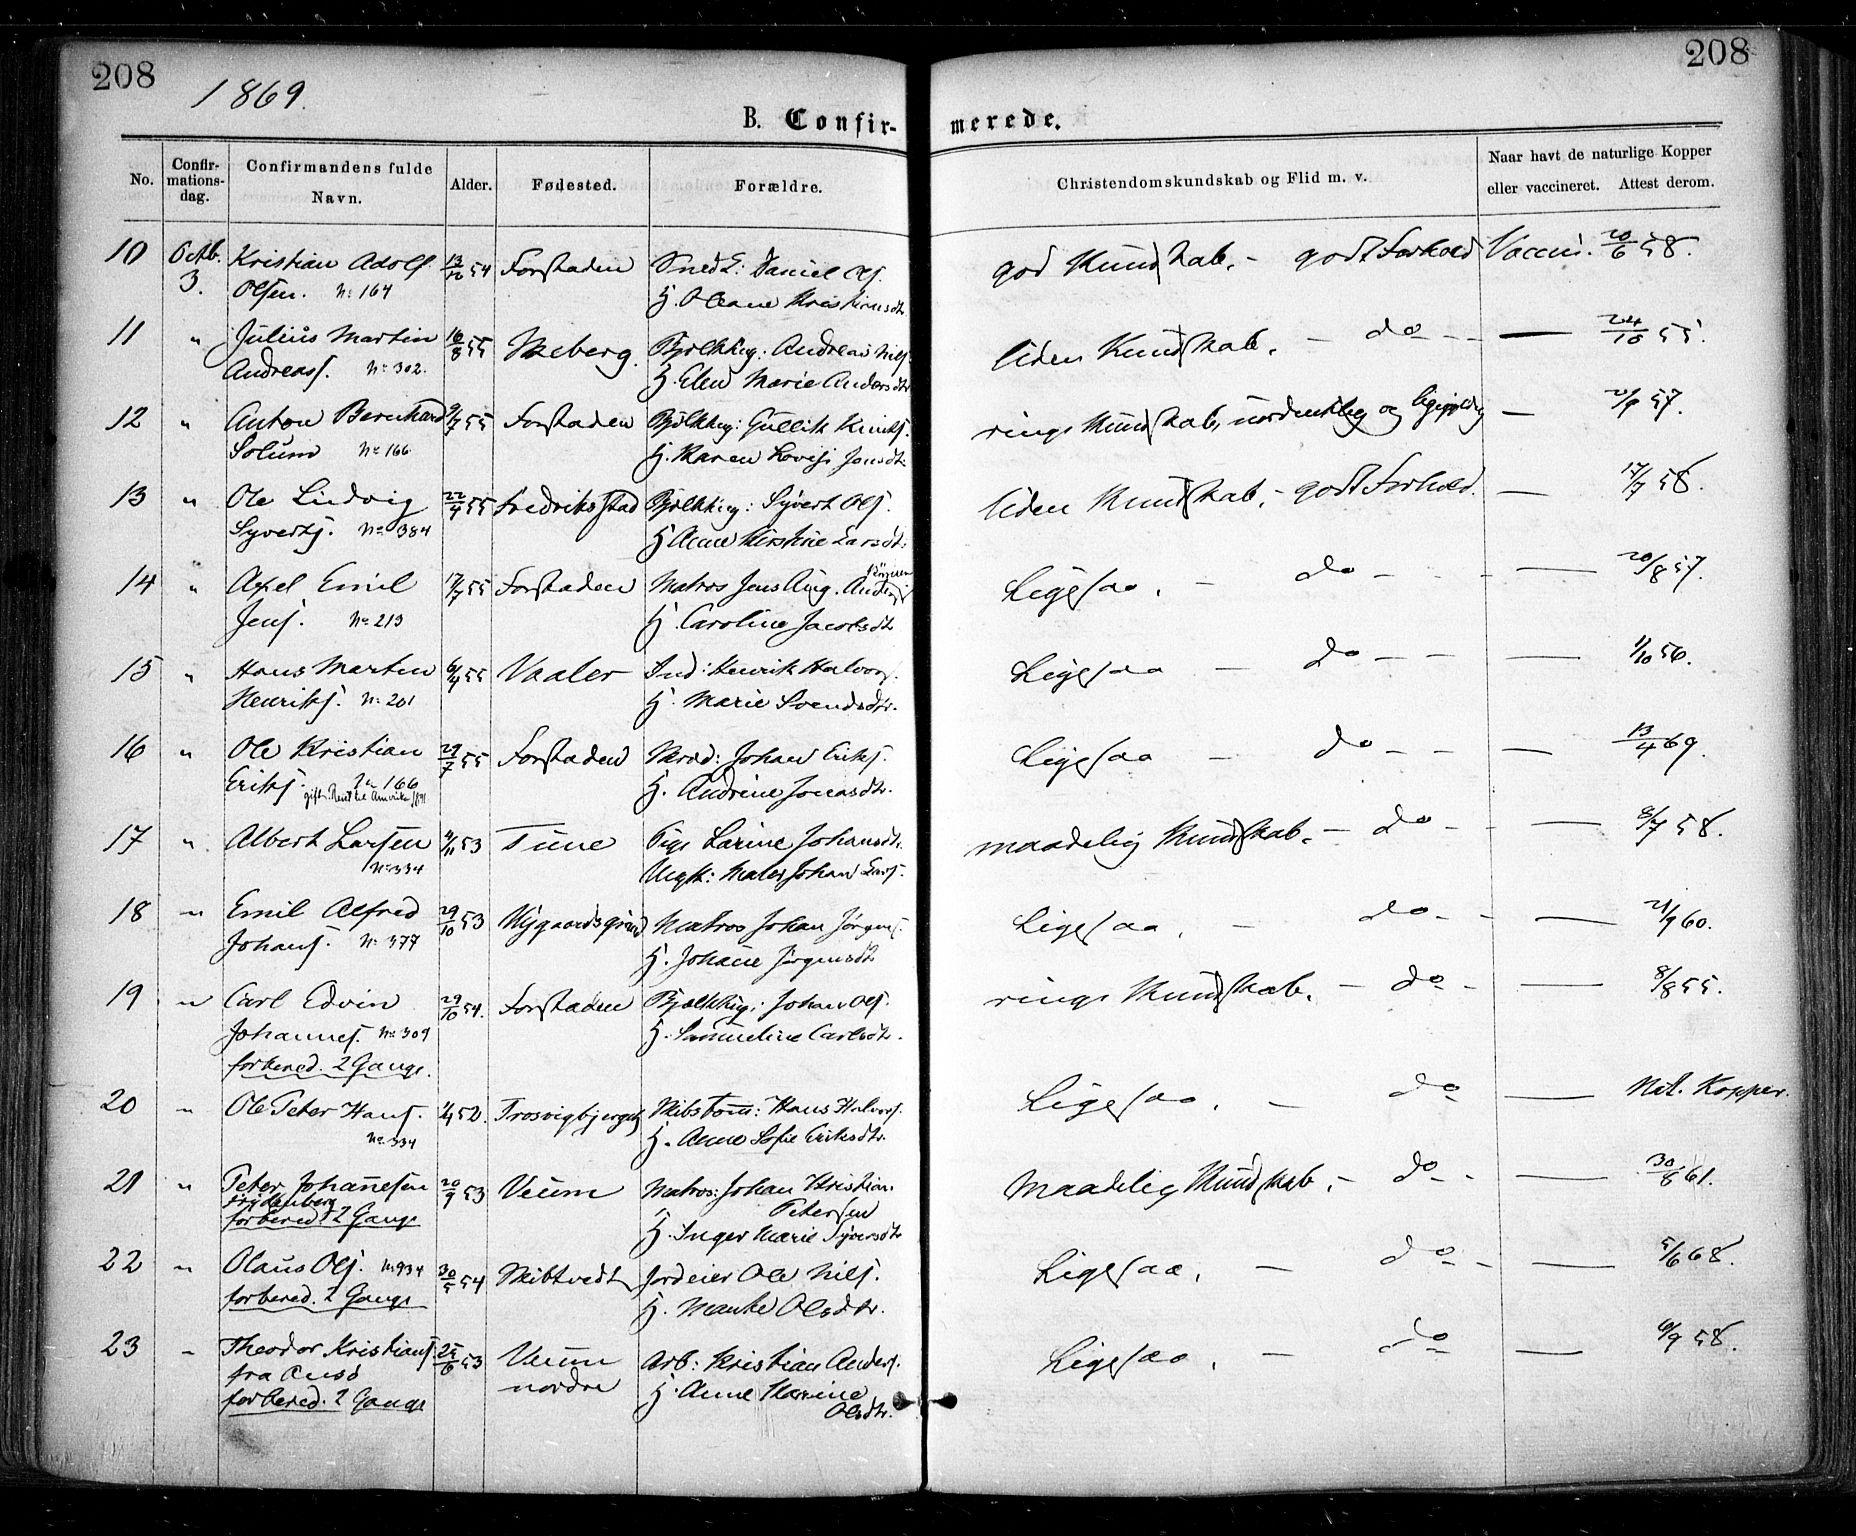 208
208
1869.
B. Confir-
merede.
No.
Confir-
mations-
dag.
Confirmandens fulde
Navn.
Alder.
Fødested.
Forældre.
Christendomskundskab og Flid m. v.
Naar havt de naturlige Kopper
eller vaccineret. Attest derom.
10 Octb. Kristian Adolf 13/12 54 Forstaden Daniel Ols. god Kundskab. - godt Forhold Vaccin. 20/6 58.
3. Olsen. No 164 H. Oleane Kristiansdtr
11 " Julius Martin 16/8 55 Skeberg. Bjelkhug: Andreas Nils. liden Kundskab. - do - - — 24/10 55.
Andreass. No 302. H. Elen Marie Andersdtr
12 " Anton Bernhard 9/7 55 Forstaden Bjelkhug: Gullik ringe Kundskab, uordentlig og — 57.
Solum No 166 H. Karen Lovise Jensdtr.
13 " Ole Ludvig 22/4 55 Fredriksstad Bjelkhug: Syvert Ols. liden Kundskab. - godt Forhold. — 17/7 58.
Syverts. No 384 H Anne Kirstine Larsdtr.
14 " Axel Emil 17/7 55 Forstaden Matros Jens Aug. Ligesaa. - do - - — 20/8 57.
Jens. No 213 H. Caroline Jacobsdtr
15 " Hans Martin 6/4 55 Vaaler Ind: Henrik Halvors. Ligesaa - do - - — 1/10 56.
Henriks. No 201 H. Marie Svendsdtr.
16 " Ole Kristian 29/7 55 Forstaden Skræd: Johan Eriks. Ligesaa - do - - — 13/4 69.
Eriks. 166 H. Andrine Jonasdtr.
gift. Reist til Amerika
17 " Albert Larsen 4/11 53 Tune Pige Larine Johansdtr. maadelig Kundskab. - do - - — 8/7 58.
No 334 Ungk: Johan Lars.
18 " Emil Alfred 29/10 53 Nygaardsgrund Matros Johan Jørgens. Ligesaa. - do - - — 21/9 60.
Johans. No 377 H. Johane Jørgensdtr
19 " Carl Edvin 29/10 54. Forstaden Bjelkhug: Johan Ols. ringe Kundskab. - do - - — 8/8 55.
Johannes. No 309 H. Samueline Carlsdtr.
forbered. 2 Gange.
20 " Ole Peter Hans. 52. Trosvigbjerget Skibstøm: Hans Halvors. Ligesaa. - do — Nat. Kopper.
No 334 H. Anne Sofie Eriksdtr.
21 " Peter Johannesen 20/9 53 Veum Matros: Johan Kristian Maadelig Kundskab. - do - - — 30/8 61.
Frydenberg Petersen
forbered. 2 Gange H. Inger Marie Syversdtr
22 " Olaus Ols. No 934 30/5 54 Skibtvedt Jordeier Ole Nils. Ligesaa. - do - - — 5/6 68.
forbered. 2 Gange H. Olsdtr.
23 " Theodor Kristians. 25/6 53 Veum Arb: Kristian Anders. Ligesaa. - do — 9/9 58.
fra nordre H. Anne Karine
forbered. 2 Gange Olsdtr.